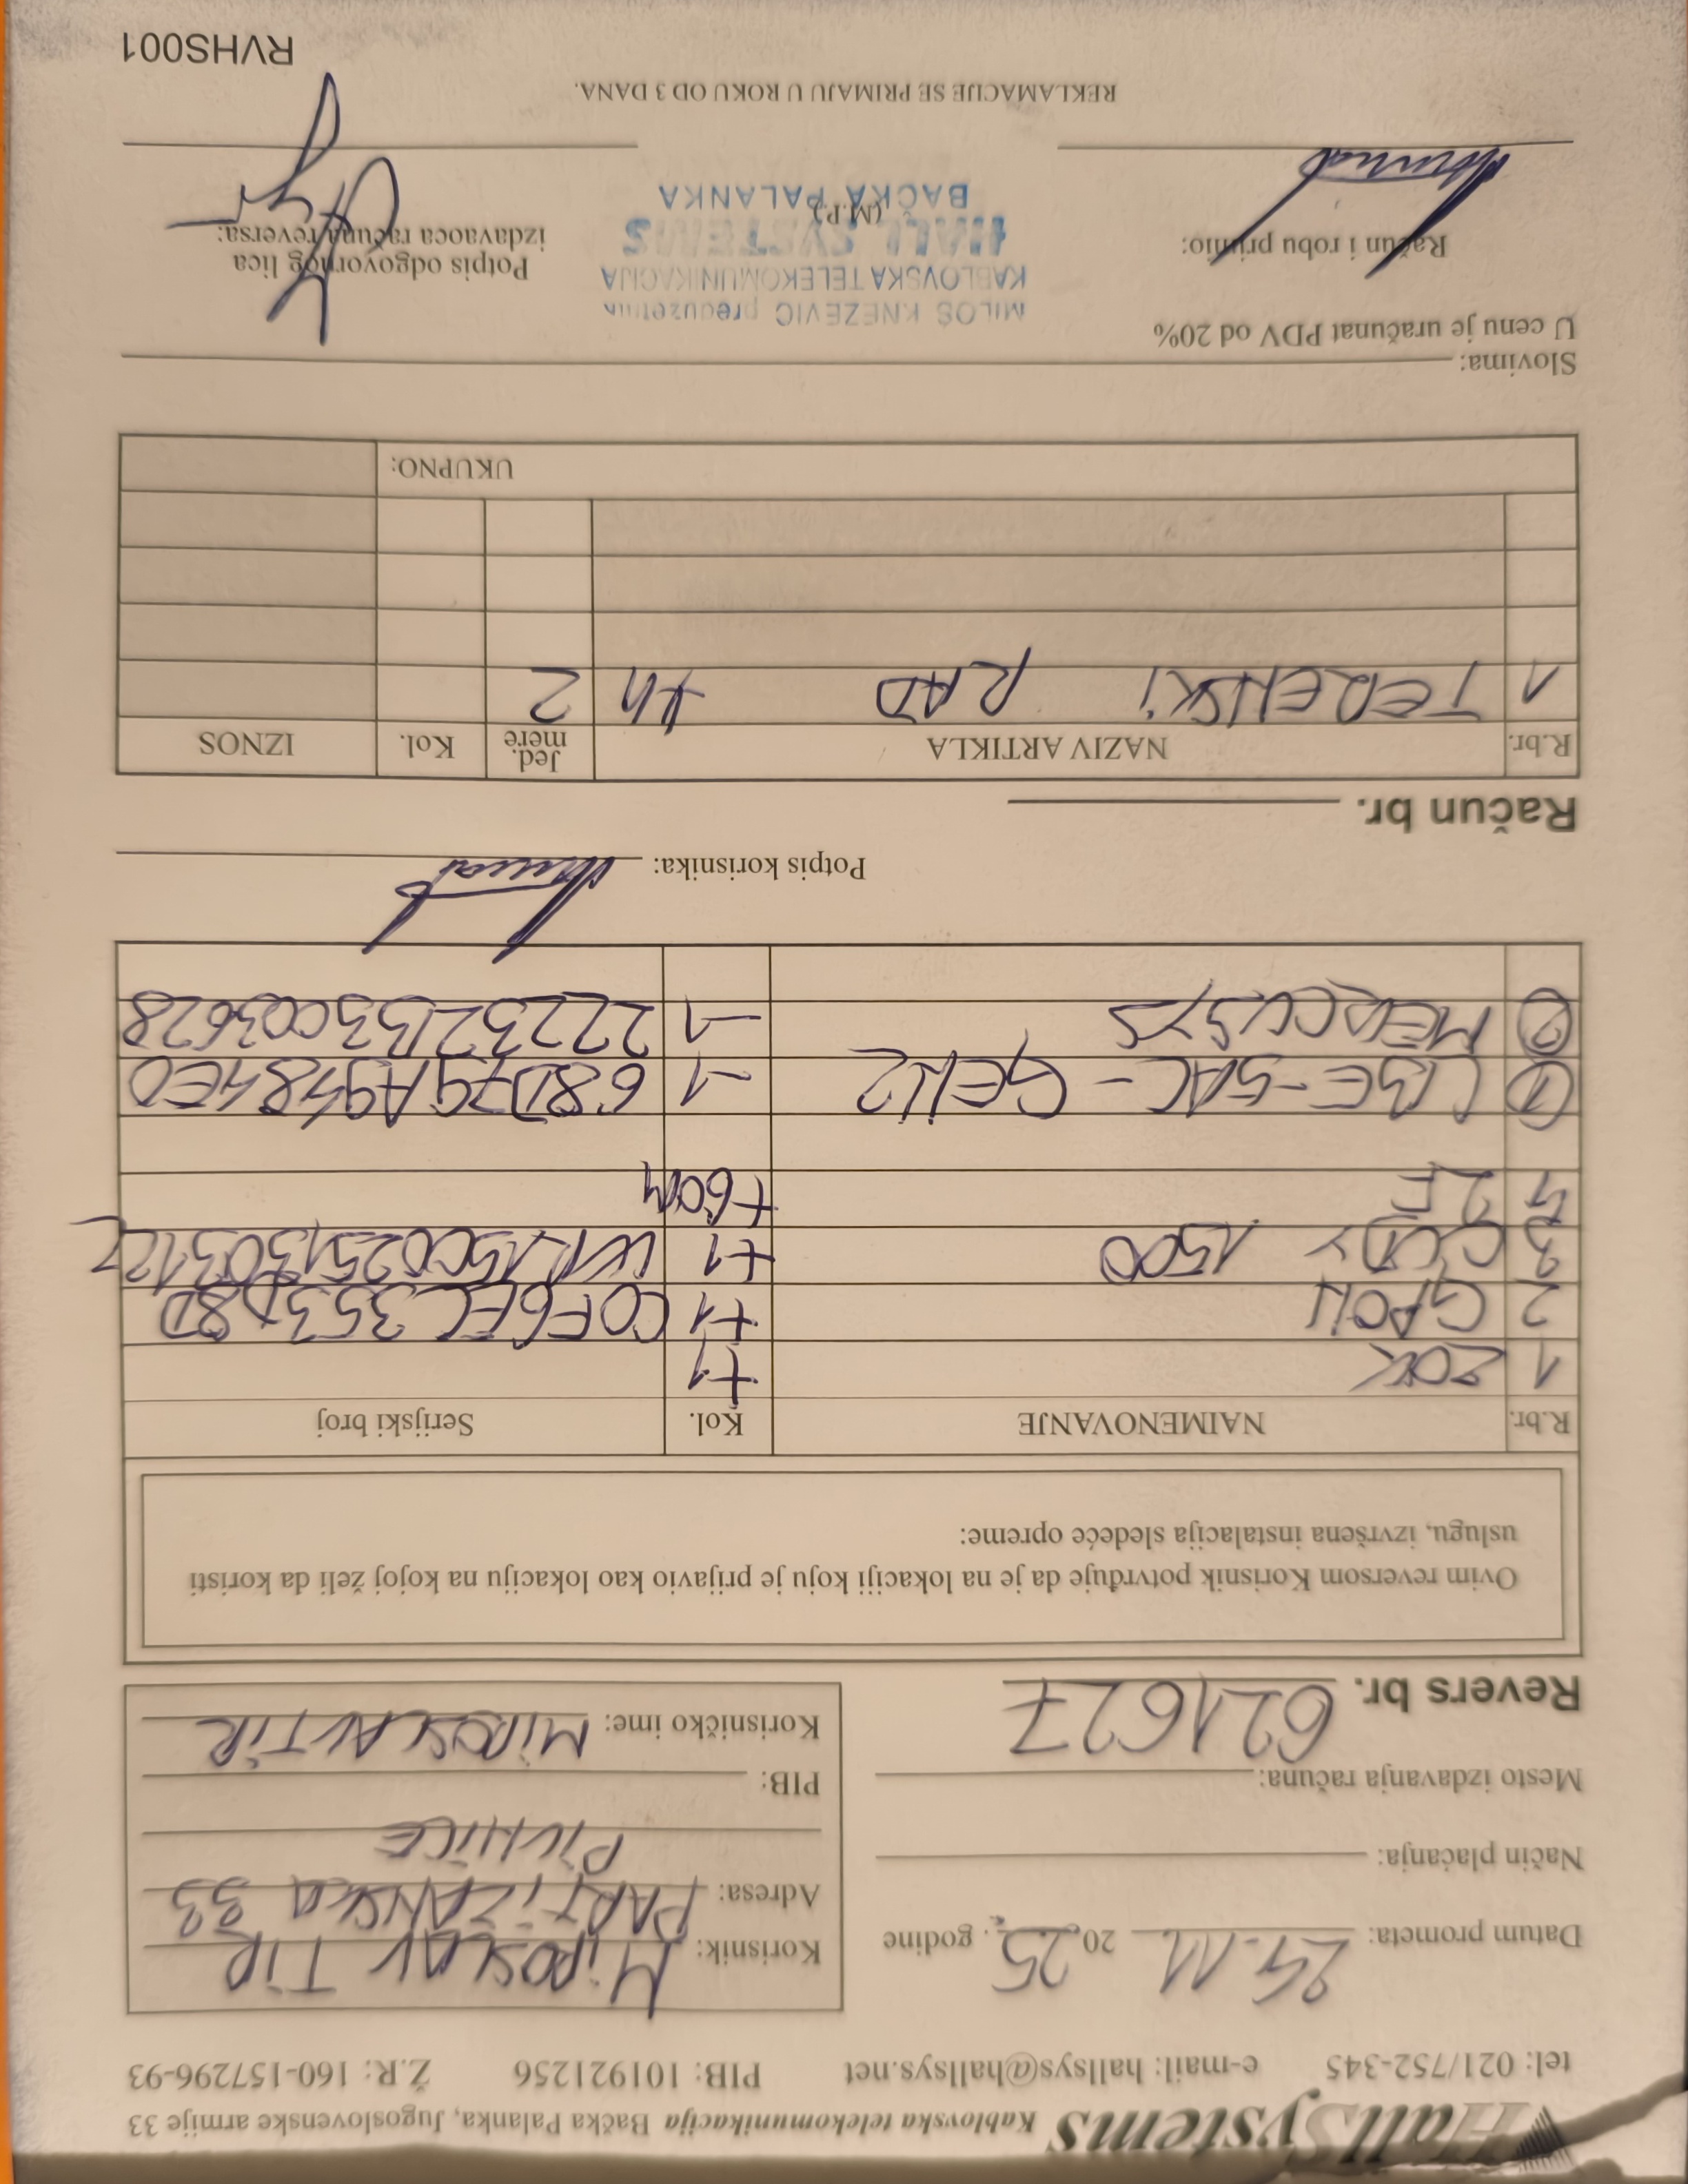 HallSystems Kablovska telekomunikacija Bačka Palanka, Jugoslovenske armije 33
tel: 021/752-345 e-mail: hallsys@hallsys.net PIB: 101921256 Ž.R: 160-157296-93
Datum prometa: 24.11 20 25. godine
Način plaćanja:
Mesto izdavanja računa:
Revers br. 621627
Korisnik: MIROSLAV TIR
Adresa: PARTIZANSKA 33
PIVNICE
PIB:
Korisničko ime: MIROSLAVTIR
Ovim reversom Korisnik potvrđuje da je na lokaciji koju je prijavio kao lokaciju na kojoj želi da koristi
uslugu, izvršena instalacija sledeće opreme:
R.br. NAIMENOVANJE Kol. Serijski broj
1 ZOK +1
2 GPON +1 COF6EC353D8D
3 CUDY 1500 +1
4 2F +60M
1 LBE-5AC-GEN2 -1 68D79A9484E0
2 MERCUSYS -1 22232B3003628
Potpis korisnika:
Račun br.
R.br. NAZIV ARTIKLA Jed. mere Kol. IZNOS
1 TERENSKI RAD 2
UKUPNO:
Slovima:
U cenu je uračunat PDV od 20%
Račun i robu primio:
MILOŠ KNEŽEVIĆ preduzetnik
KABLOVSKA TELEKOMUNIKACIJA
HALL SYSTEMS
(M.P.)
BAČKA PALANKA
Potpis odgovornog lica
izdavaoca računa reversa:
REKLAMACIJE SE PRIMAJU U ROKU OD 3 DANA.
RVHS001